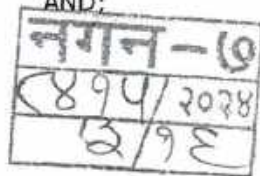 AND;
नगन - ७
८४१५/२०२४
३/१६